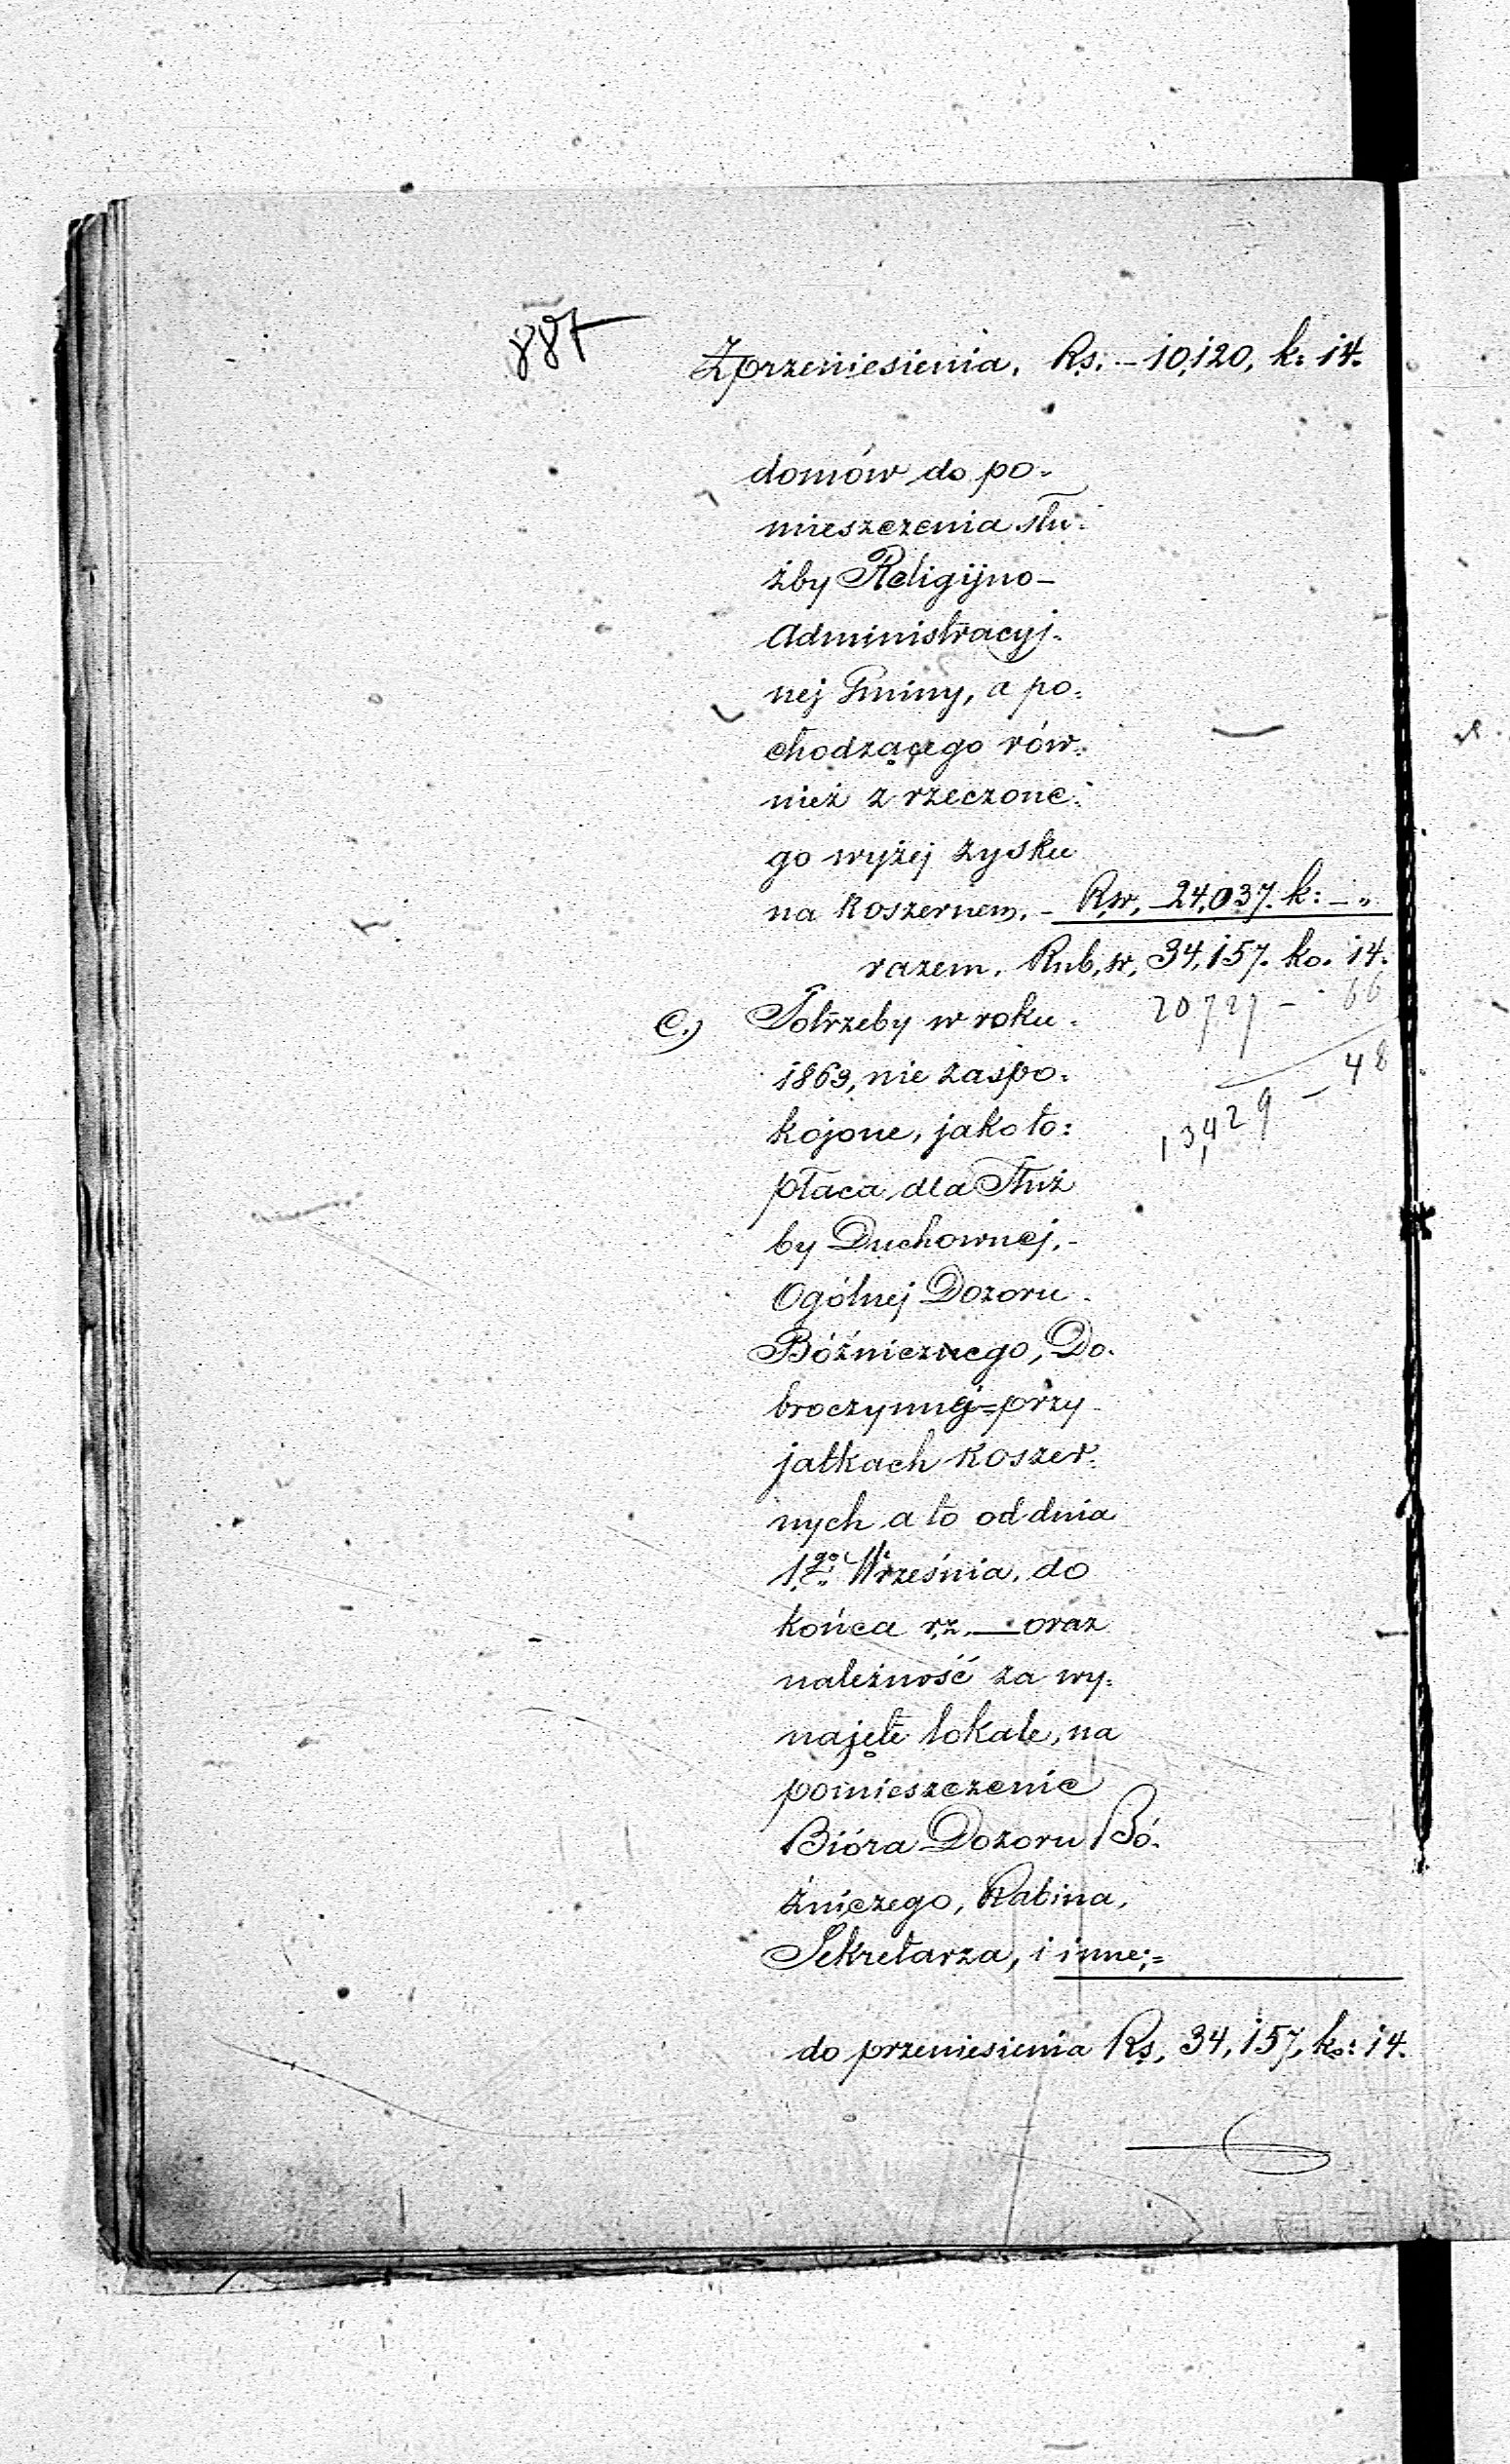 887
Zprzeniesienia. Rs. – 10,120, k: 14.
domów do po-
mieszczenia słu-
żby Religijno-
Administracyj-
nej Gminy, a po-
chodzącego rów-
nież z rzeczone-
go wyżej zysku
na koszernem. – Rsr. 24,037. k: – „
razem. Rub, sr, 34,157. ko. 14.
20727 – 66
C.) Potrzeby w roku
1863, nie zaspo-
48
kojone, jako to:
13,429 –
płaca, dla Służ
by Duchownej,-
Ogólnej Dozoru
Bóźniczego, Do-
broczynnej=przy
jatkach koszer-
nych a to od dnia
1go Września, do
końca r.z. — oraz
należność za wy-
najęte lokale, na
pomieszczenie
Bióra Dozoru Bó-
źniczego, Rabina,
Sekretarza, i inne;=
do przeniesienia Rs, 34,157, ko: 14.